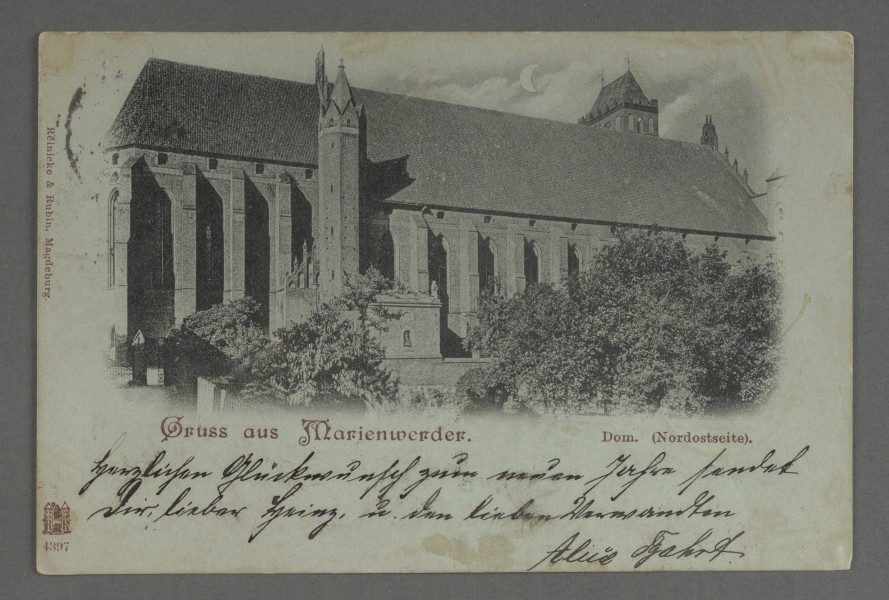 Röinicke & Rubin, Magdeburg.
Gruss aus Marienwerder.
Dom. (Nordostseite).
Herzlichen Glückwunsch zum neuen Jahre sendet
Dir, lieber Heinz, u. den lieben Verwandten
Alice
4397